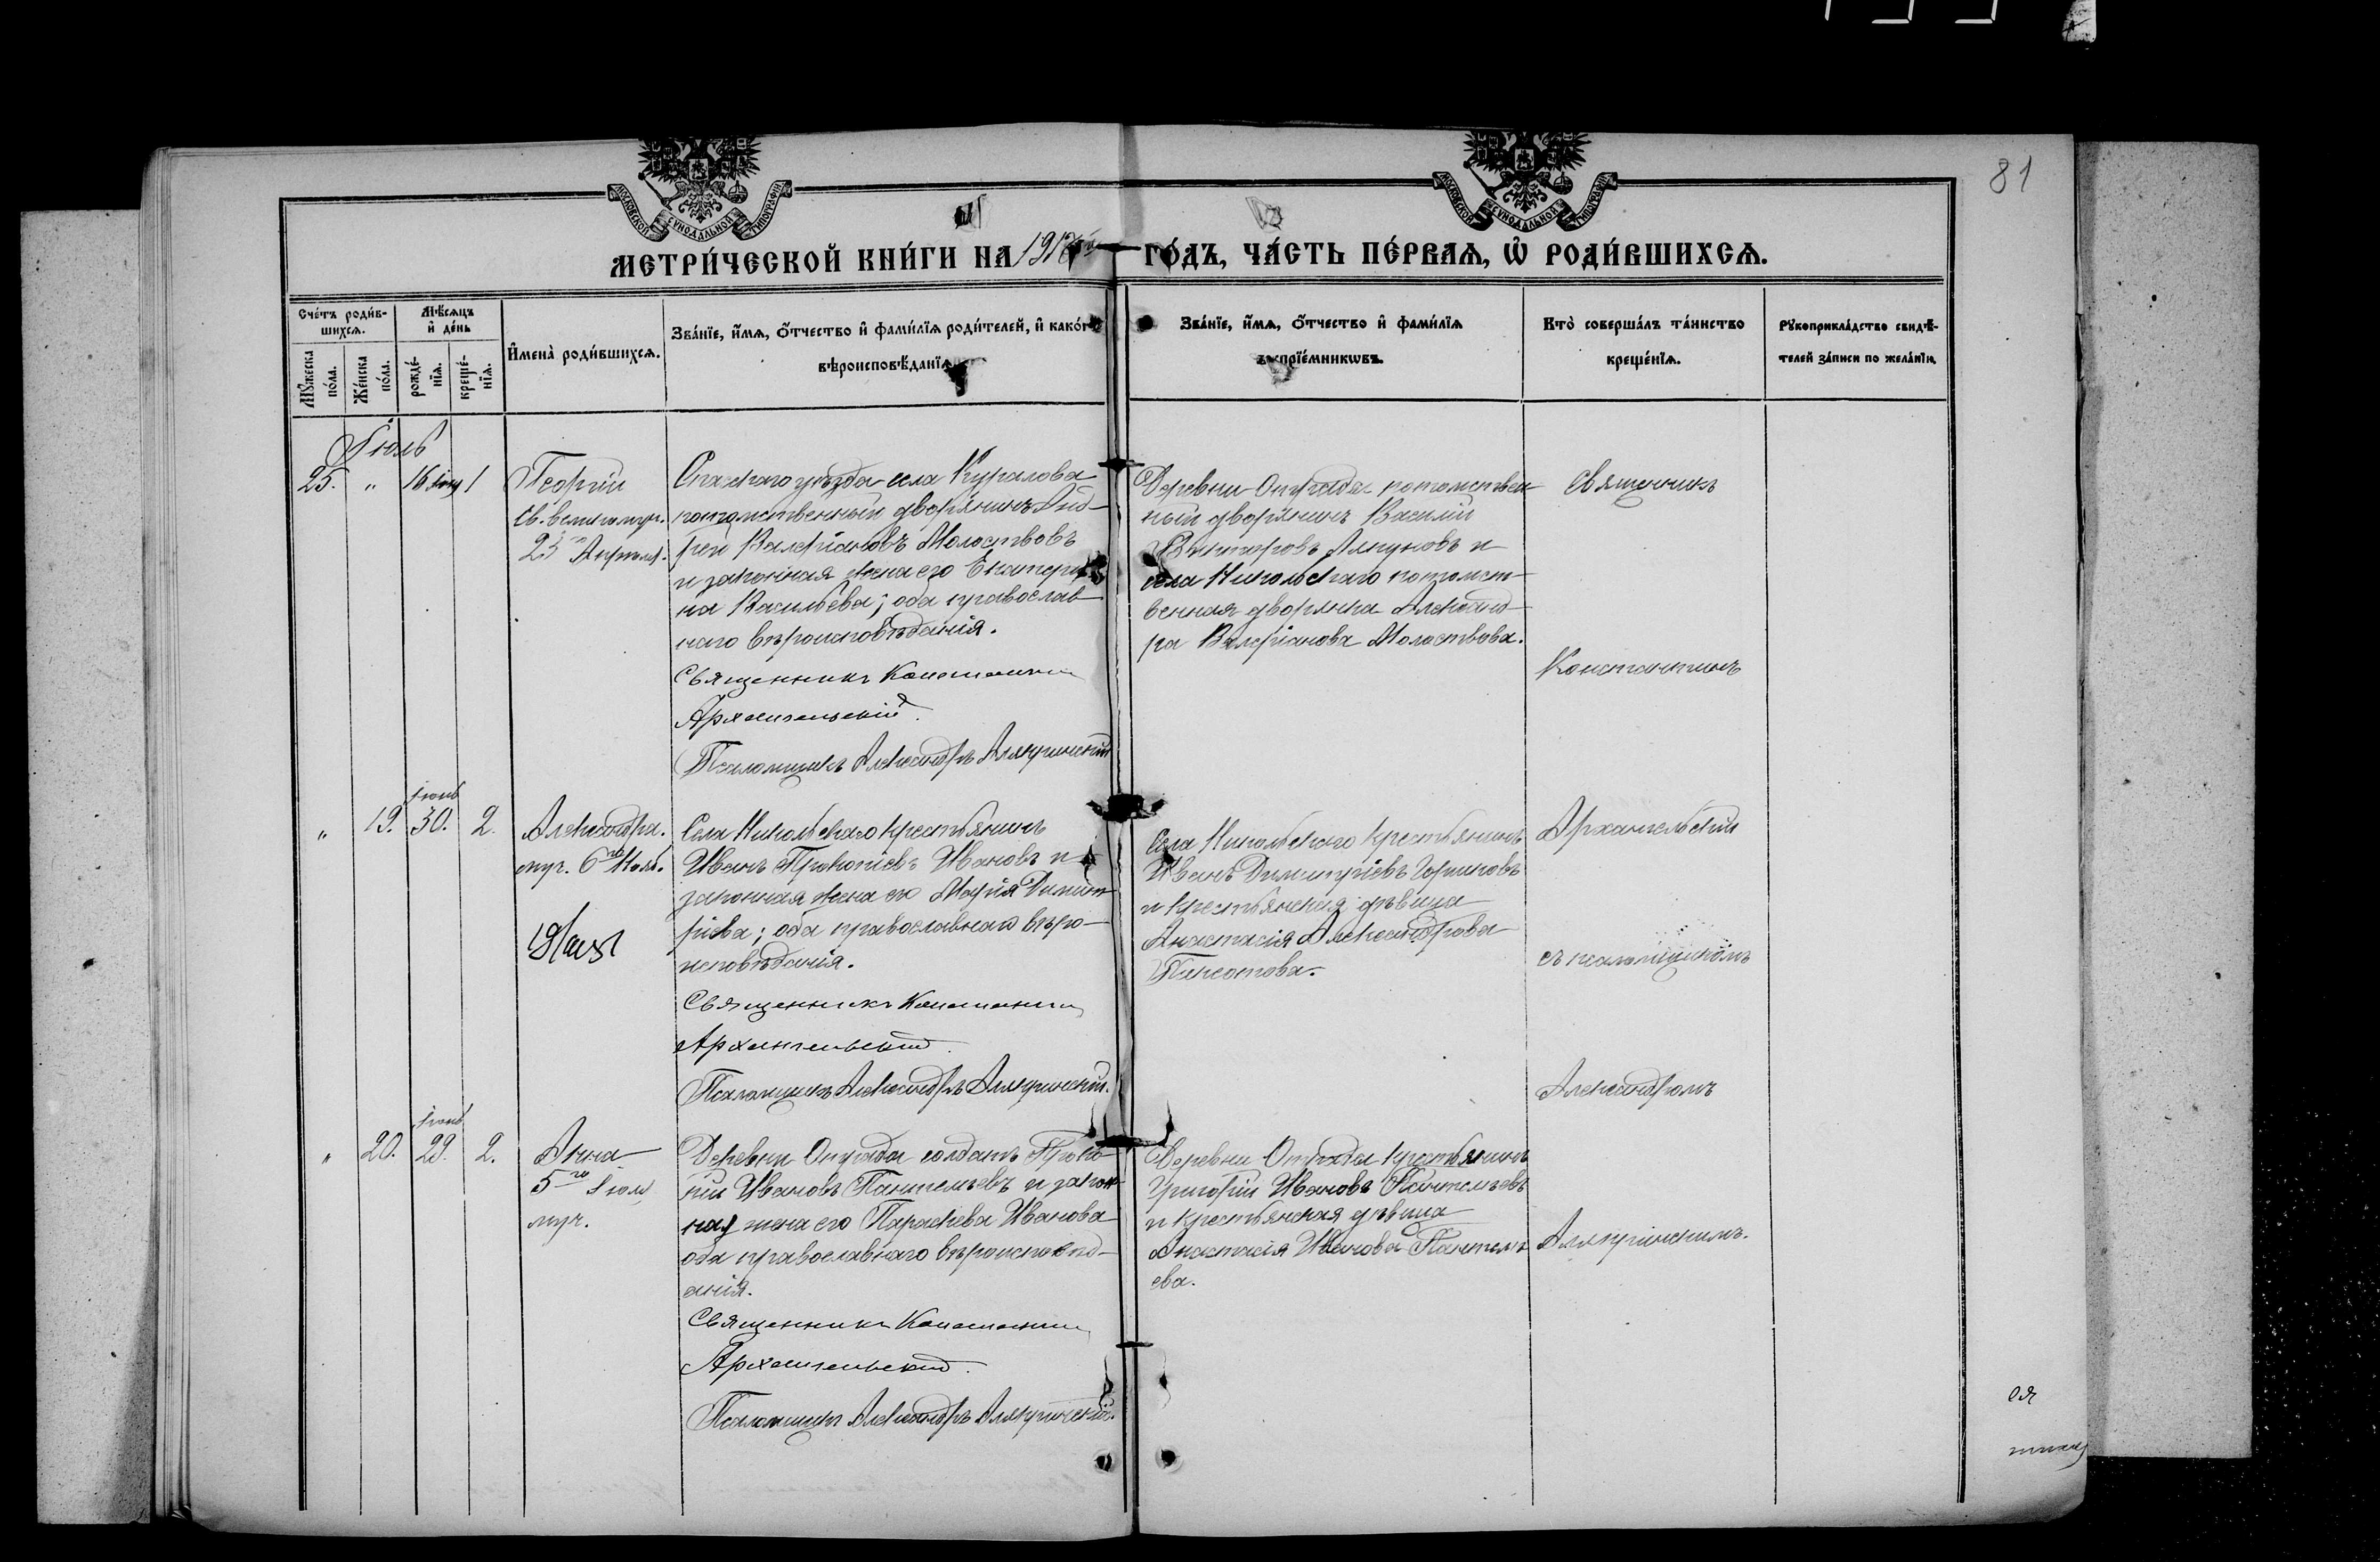 81
МОСКОВСКОЙ СУНОДАЛЬНОЙ ТИПОГРАФІИ
МОСКОВСКОЙ СУНОДАЛЬНОЙ ТИПОГРАФІИ
МЕТРИ́ЧЕСКОЙ КНИ́ГИ НА
ГО́ДЪ, ЧА́СТЬ ПЕ́РВАѦ, Ѡ҆ РОДИ́ВШИХСѦ.
Сче́тъ роди́в-
шихсѧ.
Мѣ́сѧцъ
и҆ де́нь
Мꙋ́жеска
по́ла.
Же́нска
по́ла.
рожде́-
нїѧ.
креще́-
нїѧ.
И҆мена̀ роди́вшихсѧ.
Зва́нїе, и҆́мѧ, ѻ҆́тчество и҆ фами́лїѧ роди́телей, и҆ како́гѡ
вѣроисповѣ́данїѧ
Зва́нїе, и҆́мѧ, ѻ҆́тчество и҆ фами́лїѧ
воспрїе́мникѡвъ.
Кто̀ соверша́лъ та́инство
креще́нїѧ.
Рꙋкоприкла́дство свидѣ́-
телей за́писи по жела́нїю.
Іюль
25. " 16 1
Георгій
св. великомуч.
23 Апрѣля.
Спасскаго уѣзда села Куралова
потомственный дворянинъ Анд-
рей Валеріановъ Молоствовъ
и законная жена его Екатери-
на Васильева; оба православ-
наго вѣроисповѣданія.
Священникъ Константинъ
Архангельскій.
Псаломщикъ Александръ Алякринскій
Деревни Отрады потомствен-
ный дворянинъ Василій
Викторовъ Ляпуновъ и
села Никольскаго потомст-
венная дворянка Александ-
ра Валеріанова Молоствова.
Священникъ
Константинъ
Архангельскій
съ псаломщикомъ
Александромъ
Алякринскимъ.
" 19. іюнь 30. 2.
Александра.
муч. 6го Нояб.
Села Никольскаго крестьянинъ
Иванъ Прокопіевъ Ивановъ и
законная жена его Марія Димит-
ріева; оба православнаго вѣро-
исповѣданія.
Священникъ Константинъ
Архангельскій.
Псаломщикъ Александръ Алякринскій.
Села Никольскаго крестьянинъ
Иванъ Димитріевъ Горшковъ
и крестьянская дѣвица
Анастасія Александрова
" 20. іюнь 29. 2.
Анна
5го Іюля
муч.
Деревни Отрады солдатъ Проко-
пій Ивановъ Пантелѣевъ и закон-
ная жена его Параскева Иванова
оба православнаго вѣроисповѣд-
анія.
Священникъ Константинъ
Архангельскій.
Псаломщикъ Александръ Алякринскій.
Деревни Отрады крестьянинъ
Григорій Ивановъ Пантелѣевъ
и крестьянская дѣвица
Анастасія Иванова Пантелѣ-
ева.